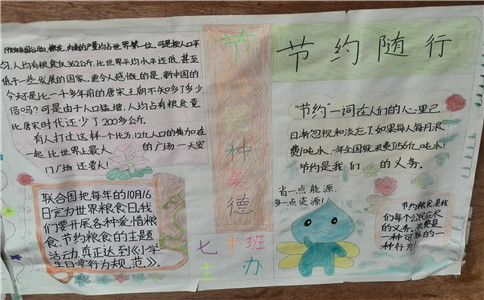 1998年我国谷物、棉花、肉类的产量均占世界第一位,可是按人口平
均,人均有粮食仅362公斤,比世界平均水平还低,甚至
低于一些发展的国家,更令人感慨的是,新中国的
今天还是比一千多年前的唐宋王朝不知多了多少
倍吗?可是由于人口猛增,人均占有粮食竟
比唐宋时代还少了200多公斤.
有人打过这样一个比方,12亿人口的餐加在
一起,比世界上最大 的广场一天安
门广场还要大!
联合国把每年的10月16
日定为世界粮食日,我
们要开展各种爱惜粮
食,节约粮食的主题
活动,真正达到《小学
生日常行为规范》。
节
种
美
德
七十班
主办
节约随行
"节约"一词在人们的心里已
日渐忽视和淡忘了.如果每人每月浪
费1吨水,一年全国就浪费156亿吨水!
节约是我们 的义务.
省一点能源.
多一点资源!
节约粮食是我
们每个公民应尽
的义务,浪费是
一种可耻的一
种行为